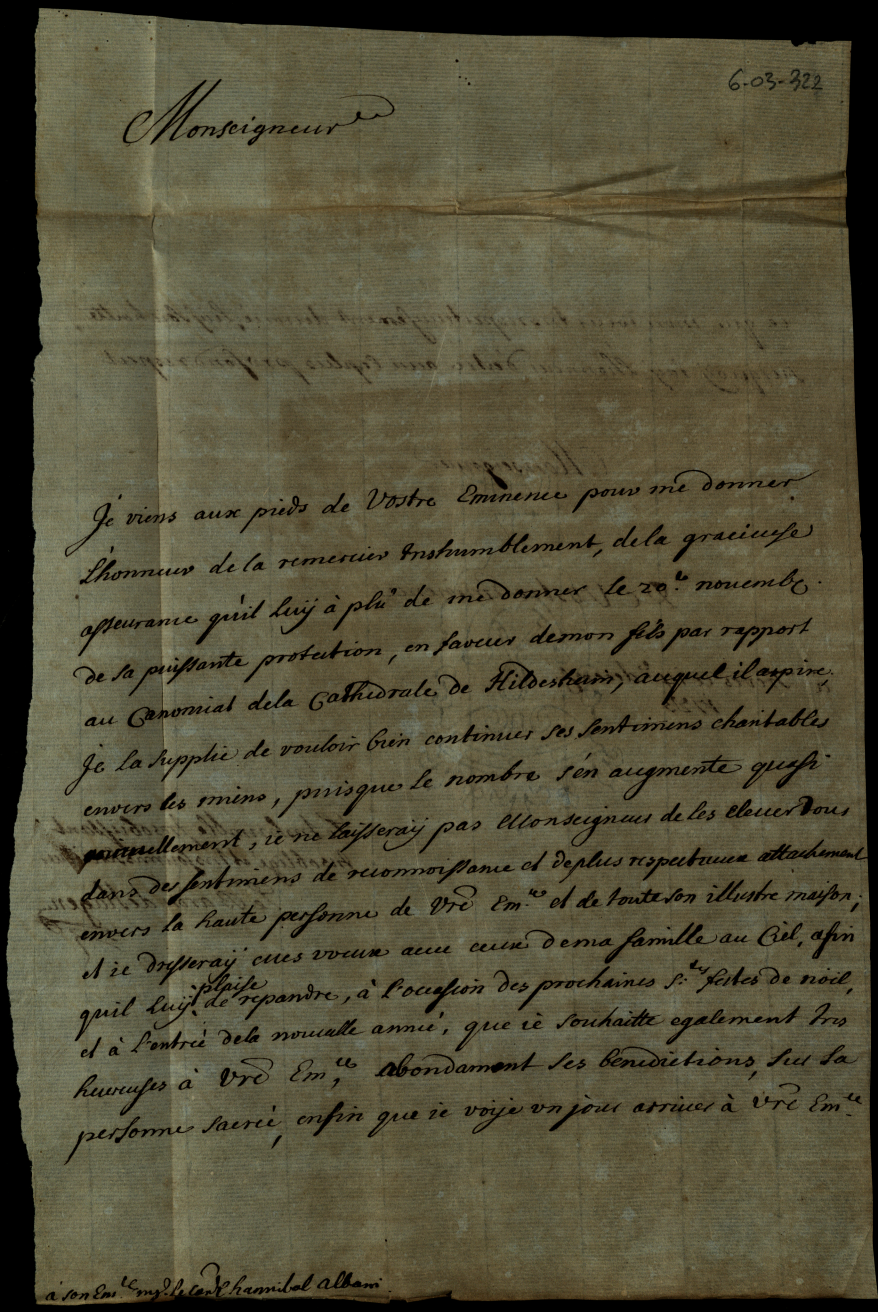 6-03-322
Monseigneur
Je viens aux pieds de Vostre Eminence pour me donner
L'honneur de la remercier treshumblement, de la gracieuse
asseurance qu'il luÿ à plû de me donner le 20.e novemb.
de sa puissante protection, en faveur demon fils par rapport
au Canonicat dela Cathedrale de Hildesheim, auquel il aspire,
Je la supplie de vouloir bien continuer ses sentimens charitables
envers les miens, puisque le nombre s'en augmente quasi
annuellement, ie ne laisseraÿ pas Monseigneur de les elever tous
dans des sentimens de reconnoissance et deplus respectueux attachement
envers la haute personne de Vrē Em.ce et de toute son illustre maison;
et ie dresseraÿ mes voeux avec ceux dema famille au Ciel, afin
plaise
quil luÿ de repandre, à l'occasion des prochaines S.tes festes de nöil,
et à l'entrée dela nouvelle année, que ie souhaitte egalement tres
heureuses à Vrē Em.ce, abondament ses benedictions, sur sa
personne sacrée, enfin que ie voije un jour arriver à Vrē Em.ce
à son Em.ce mg.r le card.l hannibal Albani